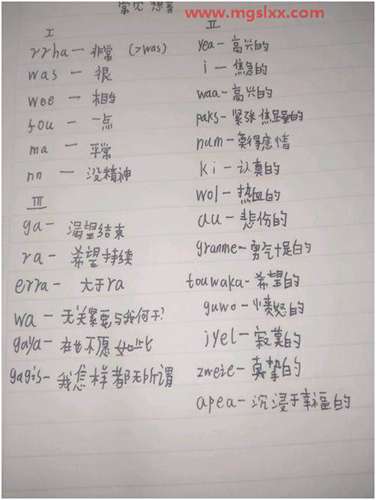 www.mgslxx.com
常见 想音
I
rrha — 非常 (>was)
was — 很
wee — 相当
fou — 一点
ma — 平常
nn — 没精神
III
ga — 渴望结束
ra — 希望持续
erra — 大于ra
wa — 无关紧要与我何干?
gaya — 在也不愿如此
gagis — 我怎样都无所谓
II
yea — 高兴的
i — 焦急的
waa — 高兴的
paks — 紧张 焦显量的
num — 莫得感情
ki — 认真的
wol — 热血的
au — 悲伤的
granme — 勇气十足的
touwaka — 希望的
guwo — 愤怒的
iyel — 寂寞的
zweie — 真挚的
apea — 沉浸于幸福的